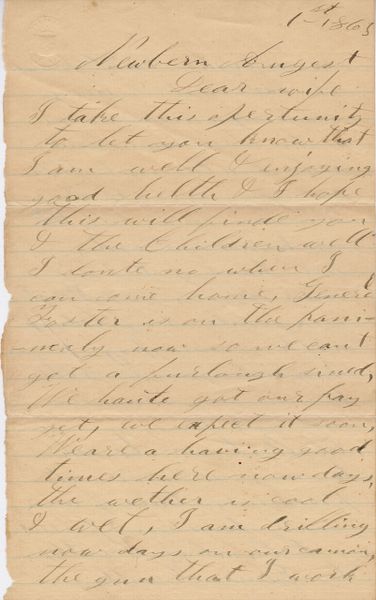 1st 1863
Newbern August
Dear wife
I take this opertunity
to let you know that
I am well & enjoying
good helth & I hope
this will finde you
& the Children well
I donte no when I
can come home, Generl
Foster is on the
now so we cant
get a furlough sined,
We hante got our pay
yet, we expect it soon,
We are a having good
times here now days,
the wether is cool
& wet, I am drilling
now days on our canon,
the gun that I work